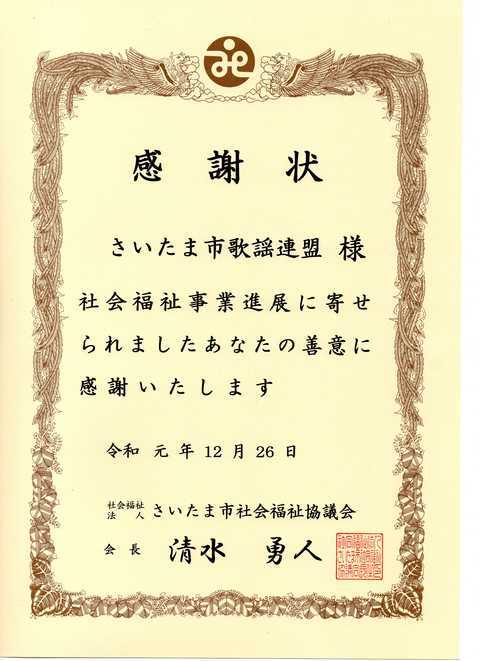 感謝状
さいたま市歌謡連盟 様
社会福祉事業進展に寄せ
られましたあなたの善意に
感謝いたします
令和 元 年 12 月 26 日
社会福祉法人 さいたま市社会福祉協議会
会長 清水 勇人